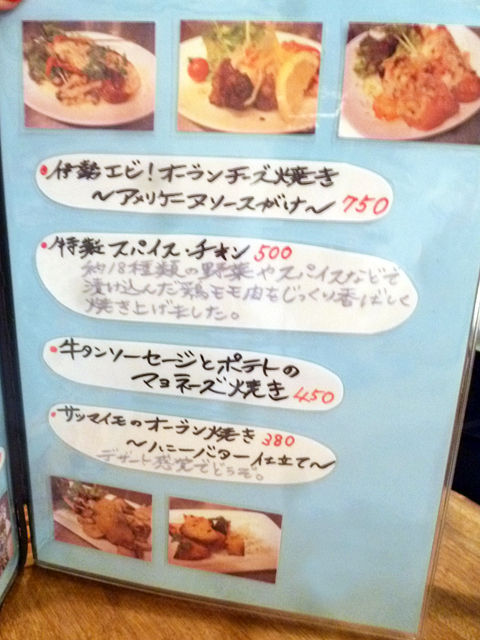 伊勢エビ!オーランチーズ焼き
~アメリケーヌソースがけ~ 750
特製スパイス・チキン 500
約18種類の野菜やスパイスなどで
漬け込んだ鶏モモ肉をじっくり香ばしく
焼き上げました。
牛タンソーセージとポテトの
マヨネーズ焼き 450
サツマイモのオーラン焼き 380
~ハニーバター仕立て~
デザート感覚でどうぞ。